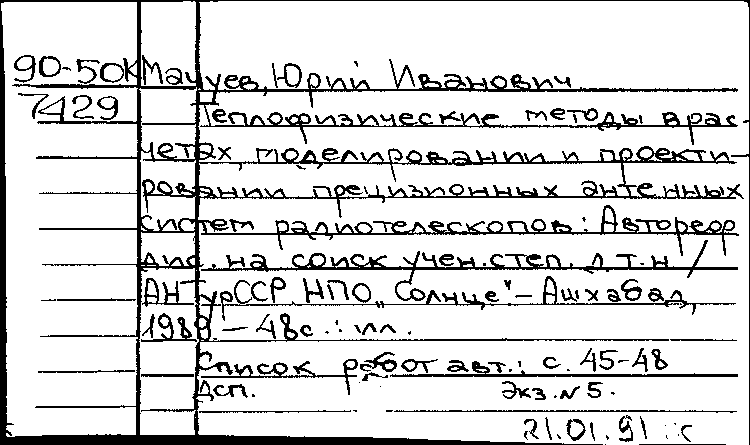 90-50К Мачуев, Юрий Иванович
7429 Теплофизические методы в рас-
четах, моделировании и проекти-
ровании прецизионных антенных
систем радиотелескопов: Автореф
дис. на соиск учен. степ. д.т.н /
АН ТурССР. НПО „Солнце" - Ашхабад,
1989. - 48с.: ил.
Список работ авт.: с. 45-48
Дсп. Экз. N 5.
21.01.91